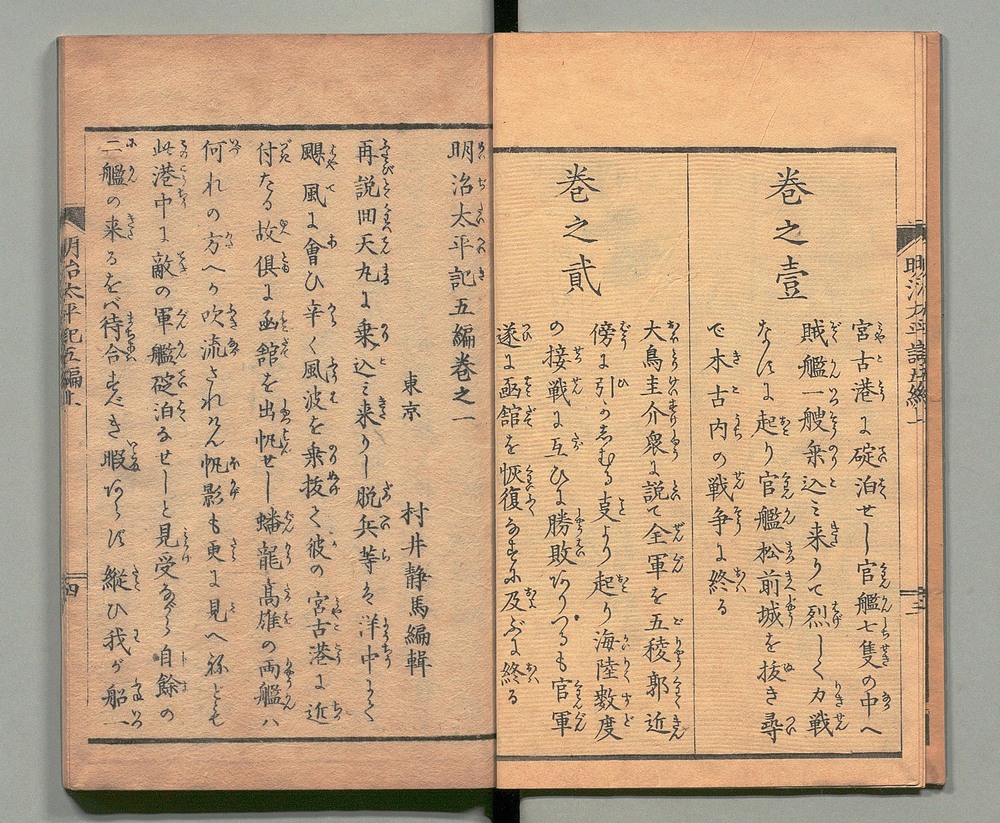 巻之壹
宮古港に碇泊せし官艦七隻の中へ
賊艦一艘乗込ミ来りて烈しく力戦
なすに起り官艦松前城を抜き尋
で木古内の戦争に終る
巻之貳
大鳥圭介衆に説て全軍を五稜郭近
傍に引かしむる支より起り海陸数度
の接戦に互ひに勝敗ありつるも官軍
遂に函舘を恢復なすに及ぶに終る
明治太平記五編巻之一
東京 村井静馬編輯
再説回天丸に乗込ミ来りし脱兵等ハ洋中にて
颶風に會ひ辛く風波を乗抜て彼の宮古港に近
付たる故倶に函舘を出帆せし蟠龍高雄の両艦ハ
何れの方へか吹流されけん帆影も更に見へねども
此港中に敵の軍艦碇泊なせしと見受ながら自餘の
二艦の来るをバ待合すべき暇あらず縦ひ我が船一
明治太平記五編上
四